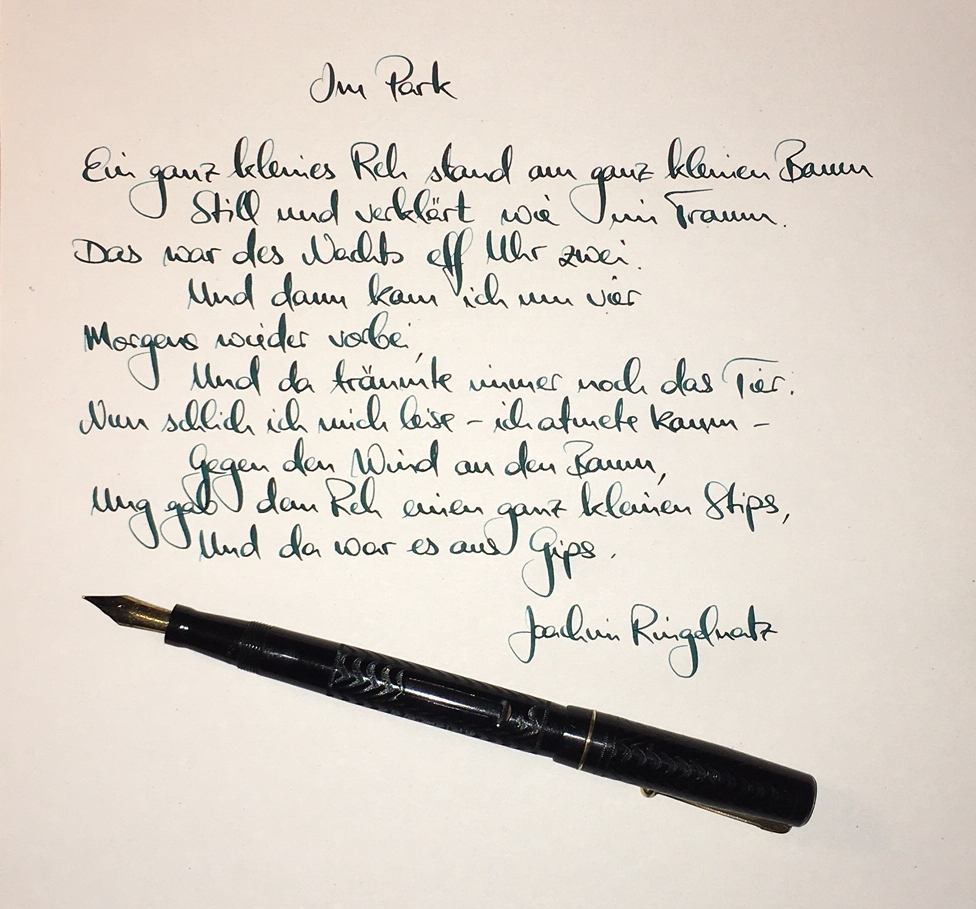 Im Park
Ein ganz kleines Reh stand am ganz kleinen Baum
Still und verklärt wie im Traum.
Das war des Nachts elf Uhr zwei.
Und dann kam ich um vier
Morgens wieder vorbei,
Und da träumte immer noch das Tier.
Nun schlich ich mich leise – ich atmete kaum –
Gegen den Wind an den Baum,
Ung gab dem Reh einen ganz kleinen Stips,
Und da war es aus Gips.
Joachim Ringelnatz